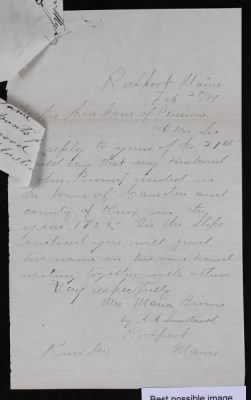 Rockport Maine
Feb 25/91
Hon Com of Pensions
Dear Sir
reply to yours of the 21st
say that my husband
Brown resided in
the town of Camden and
county of Knox in the
year 1892- On the slips
inclosed you will find
his name in his own hand
writing together with others
Very respectfully
Mrs Maria Brown
by
Rockport
Knox Co Maine
Best possible image